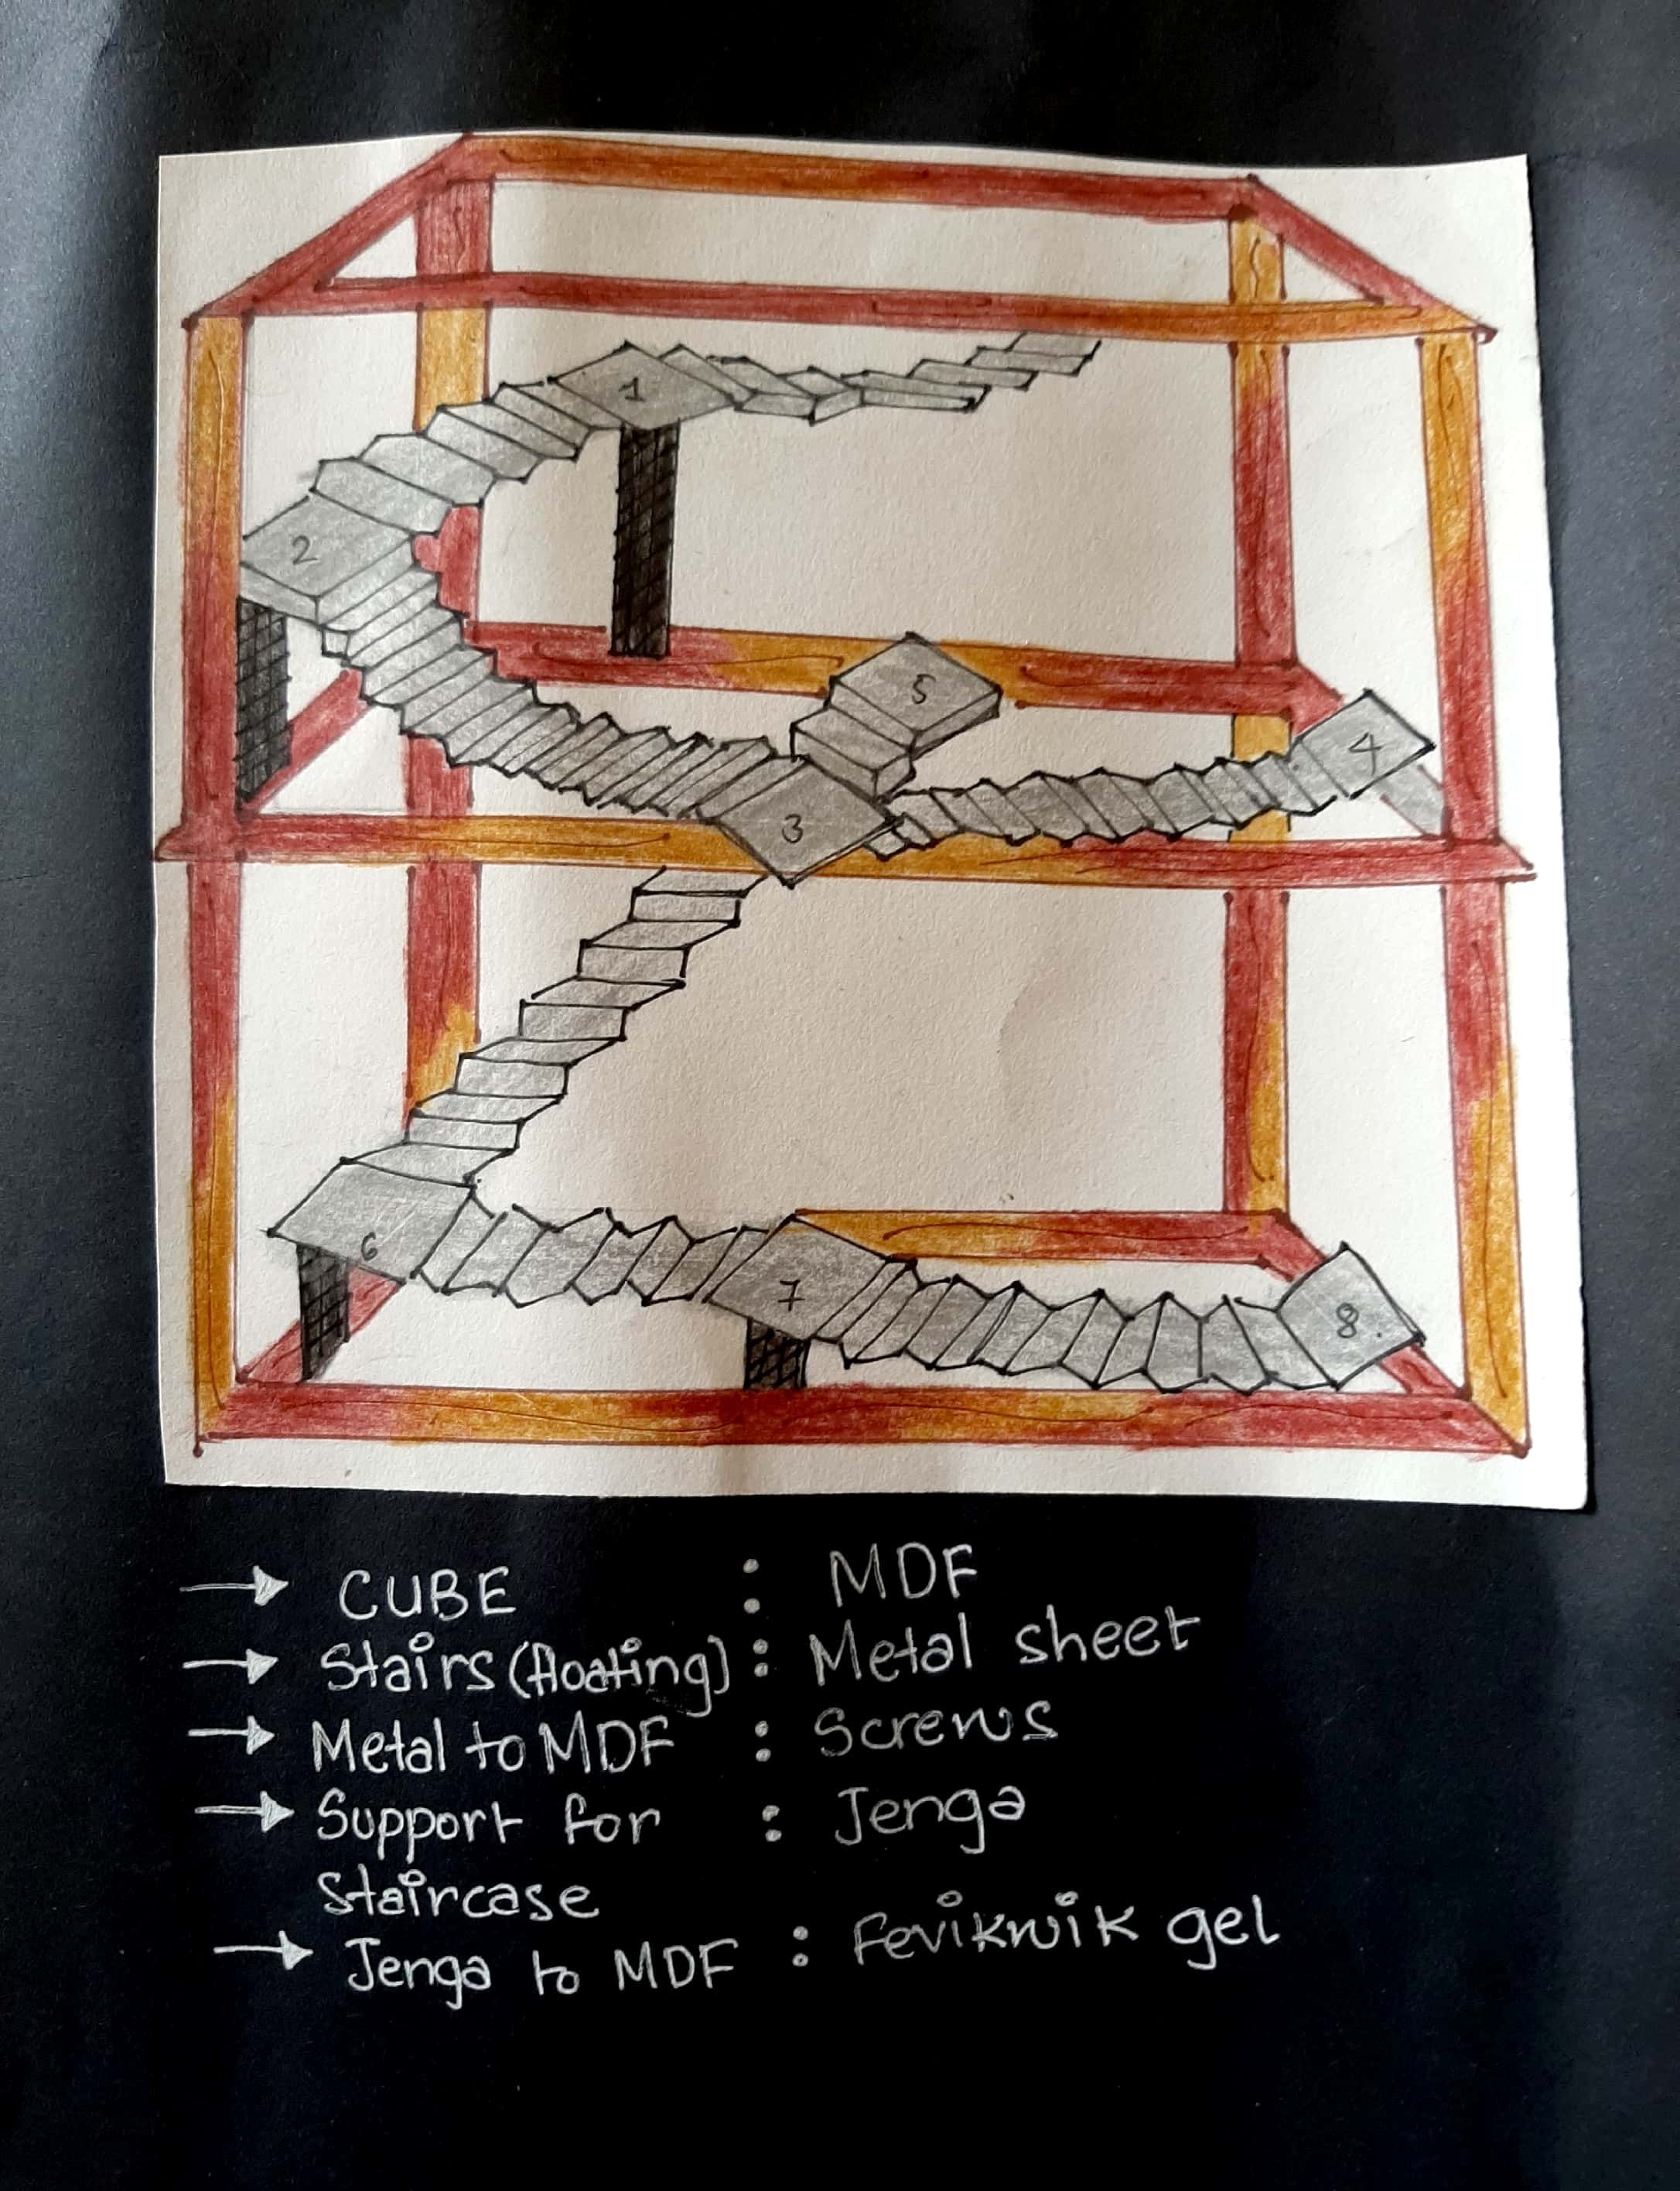 1
2
5
4
3
6
7
8
→ CUBE : MDF
→ Stairs (floating) : Metal sheet
→ Metal to MDF : Screws
→ Support for : Jenga
staircase
→ Jenga to MDF : Fevikwik gel